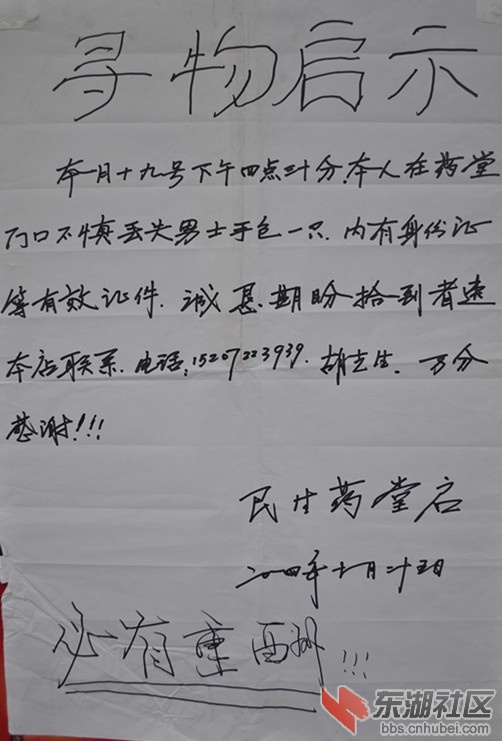 寻物启示
本月十九号下午四点三十分.本人在药堂
门口不慎丢失男士手包一只.内有身份证
等有效证件.诚甚.期盼拾到者速
本店联系.电话:15207223939.胡先生.万分
感谢!!!
民生药堂启
二〇一四年十一月二十五日
必有重酬!!!
东湖社区
bbs.cnhubei.com